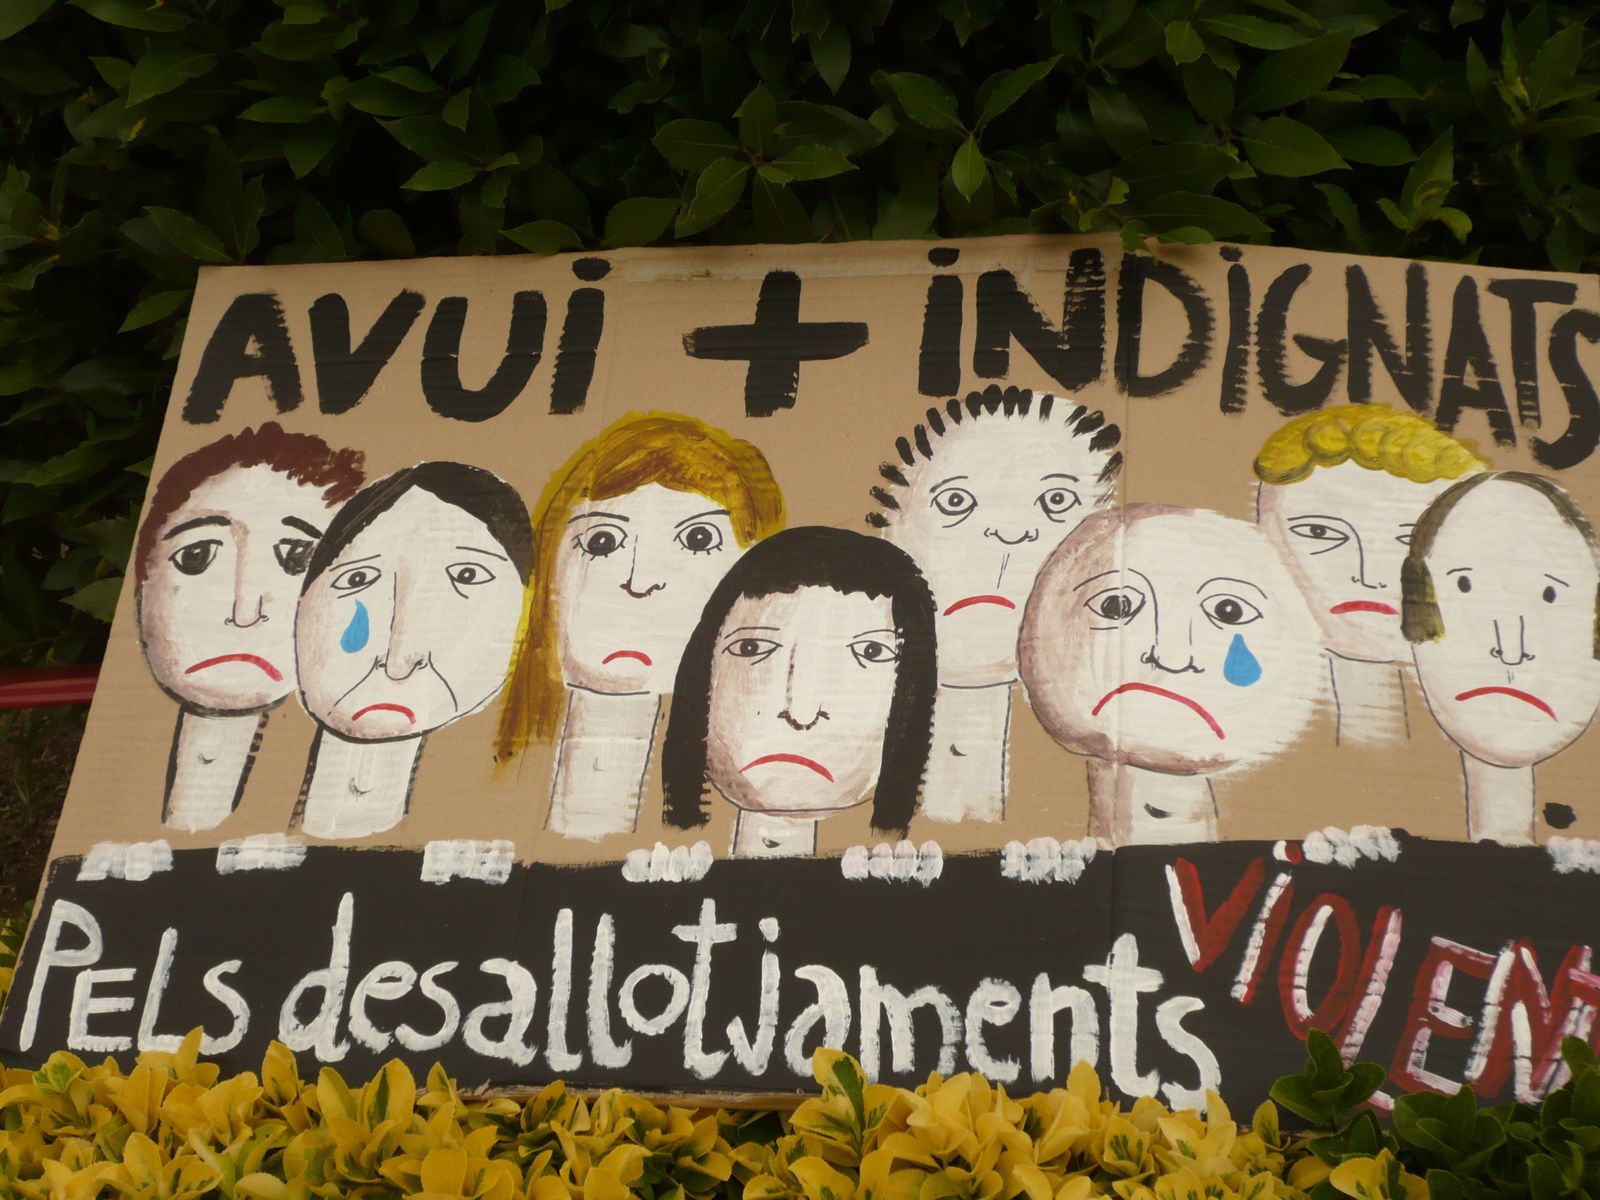 AVUi + iNDiGNATS
PELS desallotjaments ViOLENT